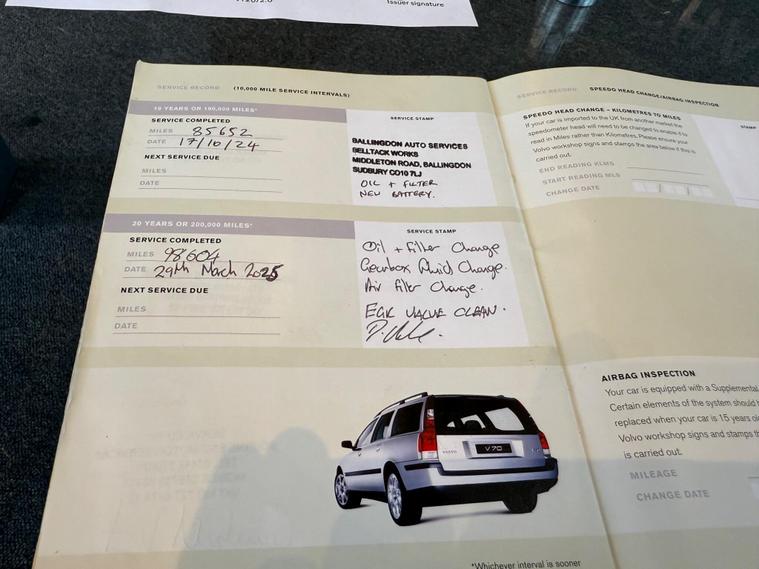 Issuer signature
SERVICE RECORD (10,000 MILE SERVICE INTERVALS)
19 YEARS OR 190,000 MILES*
SERVICE COMPLETED
MILES 85652
DATE 17/10/24
NEXT SERVICE DUE
MILES
DATE
SERVICE STAMP
BALLINGDON AUTO SERVICES
BELLTACK WORKS
MIDDLETON ROAD, BALLINGDON
SUDBURY CO10 7LJ
OIL + FILTER
NEW BATTERY.
20 YEARS OR 200,000 MILES*
SERVICE COMPLETED
MILES 98604
DATE 29th March 2025
NEXT SERVICE DUE
MILES
DATE
SERVICE STAMP
Oil + Filter Change
Gearbox Fluid Change.
Air Filter Change.
EGR VALVE CLEAN.
V 70
*Whichever interval is sooner
SERVICE RECORD SPEEDO HEAD CHANGE/AIRBAG INSPECTION
SPEEDO HEAD CHANGE – KILOMETRES TO MILES
If your car is imported to the UK from another market the
speedometer head will need to be changed to enable it to
read in Miles rather than Kilometres. Please ensure your
Volvo workshop signs and stamps the area below if this is
carried out.
END READING KLMS
START READING MLS
CHANGE DATE
STAMP
AIRBAG INSPECTION
Your car is equipped with a Supplemental
Certain elements of the system should
replaced when your car is 15 years
Volvo workshop signs and stamps
is carried out.
MILEAGE
CHANGE DATE